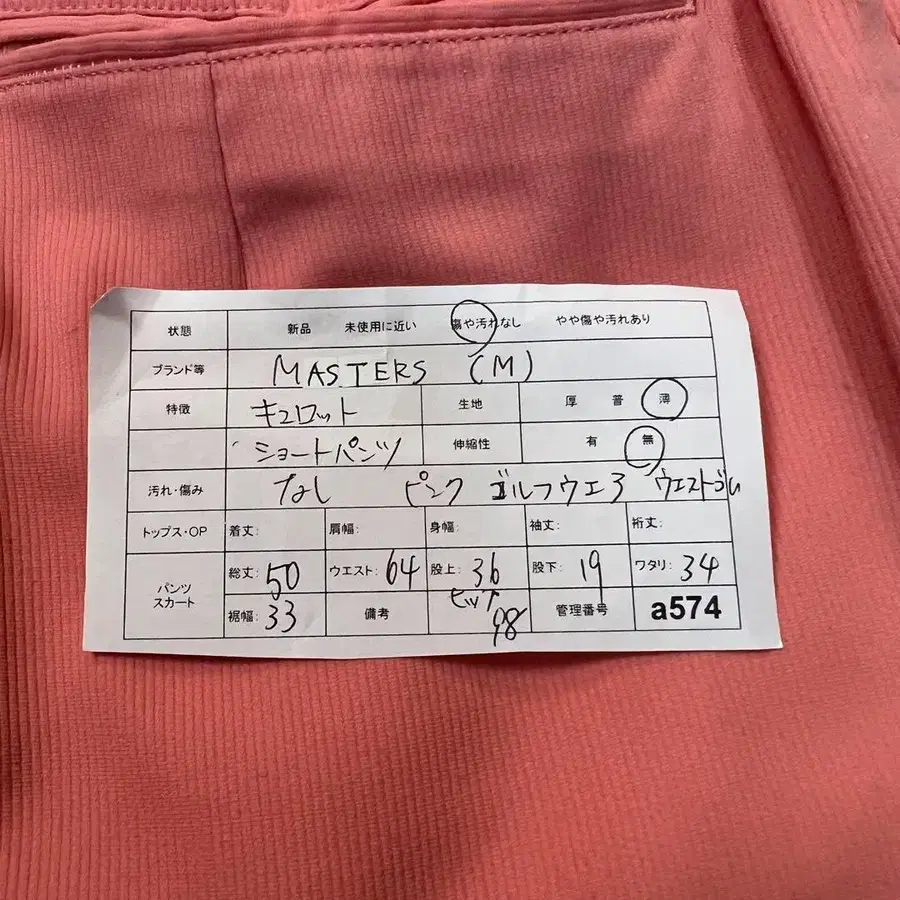 状態 新品 未使用に近い 傷や汚れなし やや傷や汚れあり
ブランド等 MASTERS (M)
特徴 キュロット 生地 厚 普 薄
ショートパンツ 伸縮性 有 無
汚れ・傷み なし ピンク ゴルフウエア ウエストゴム
トップス・OP 着丈: 肩幅: 身幅: 袖丈: 裄丈:
パンツ スカート 総丈: 50 ウエスト: 64 股上: 36 股下: 19 ワタリ: 34
裾幅: 33 備考 ヒップ 98 管理番号 a574